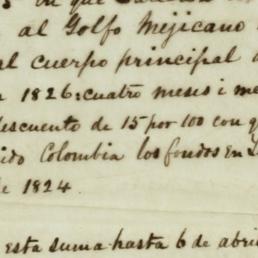 en que
al Golfo Mejicano
al cuerpo principal d
1826: cuatro meses i me
descuento de 15 por 100 con q
ido Colombia los fondos en L
de 1824
esta suma hasta 6 de abri